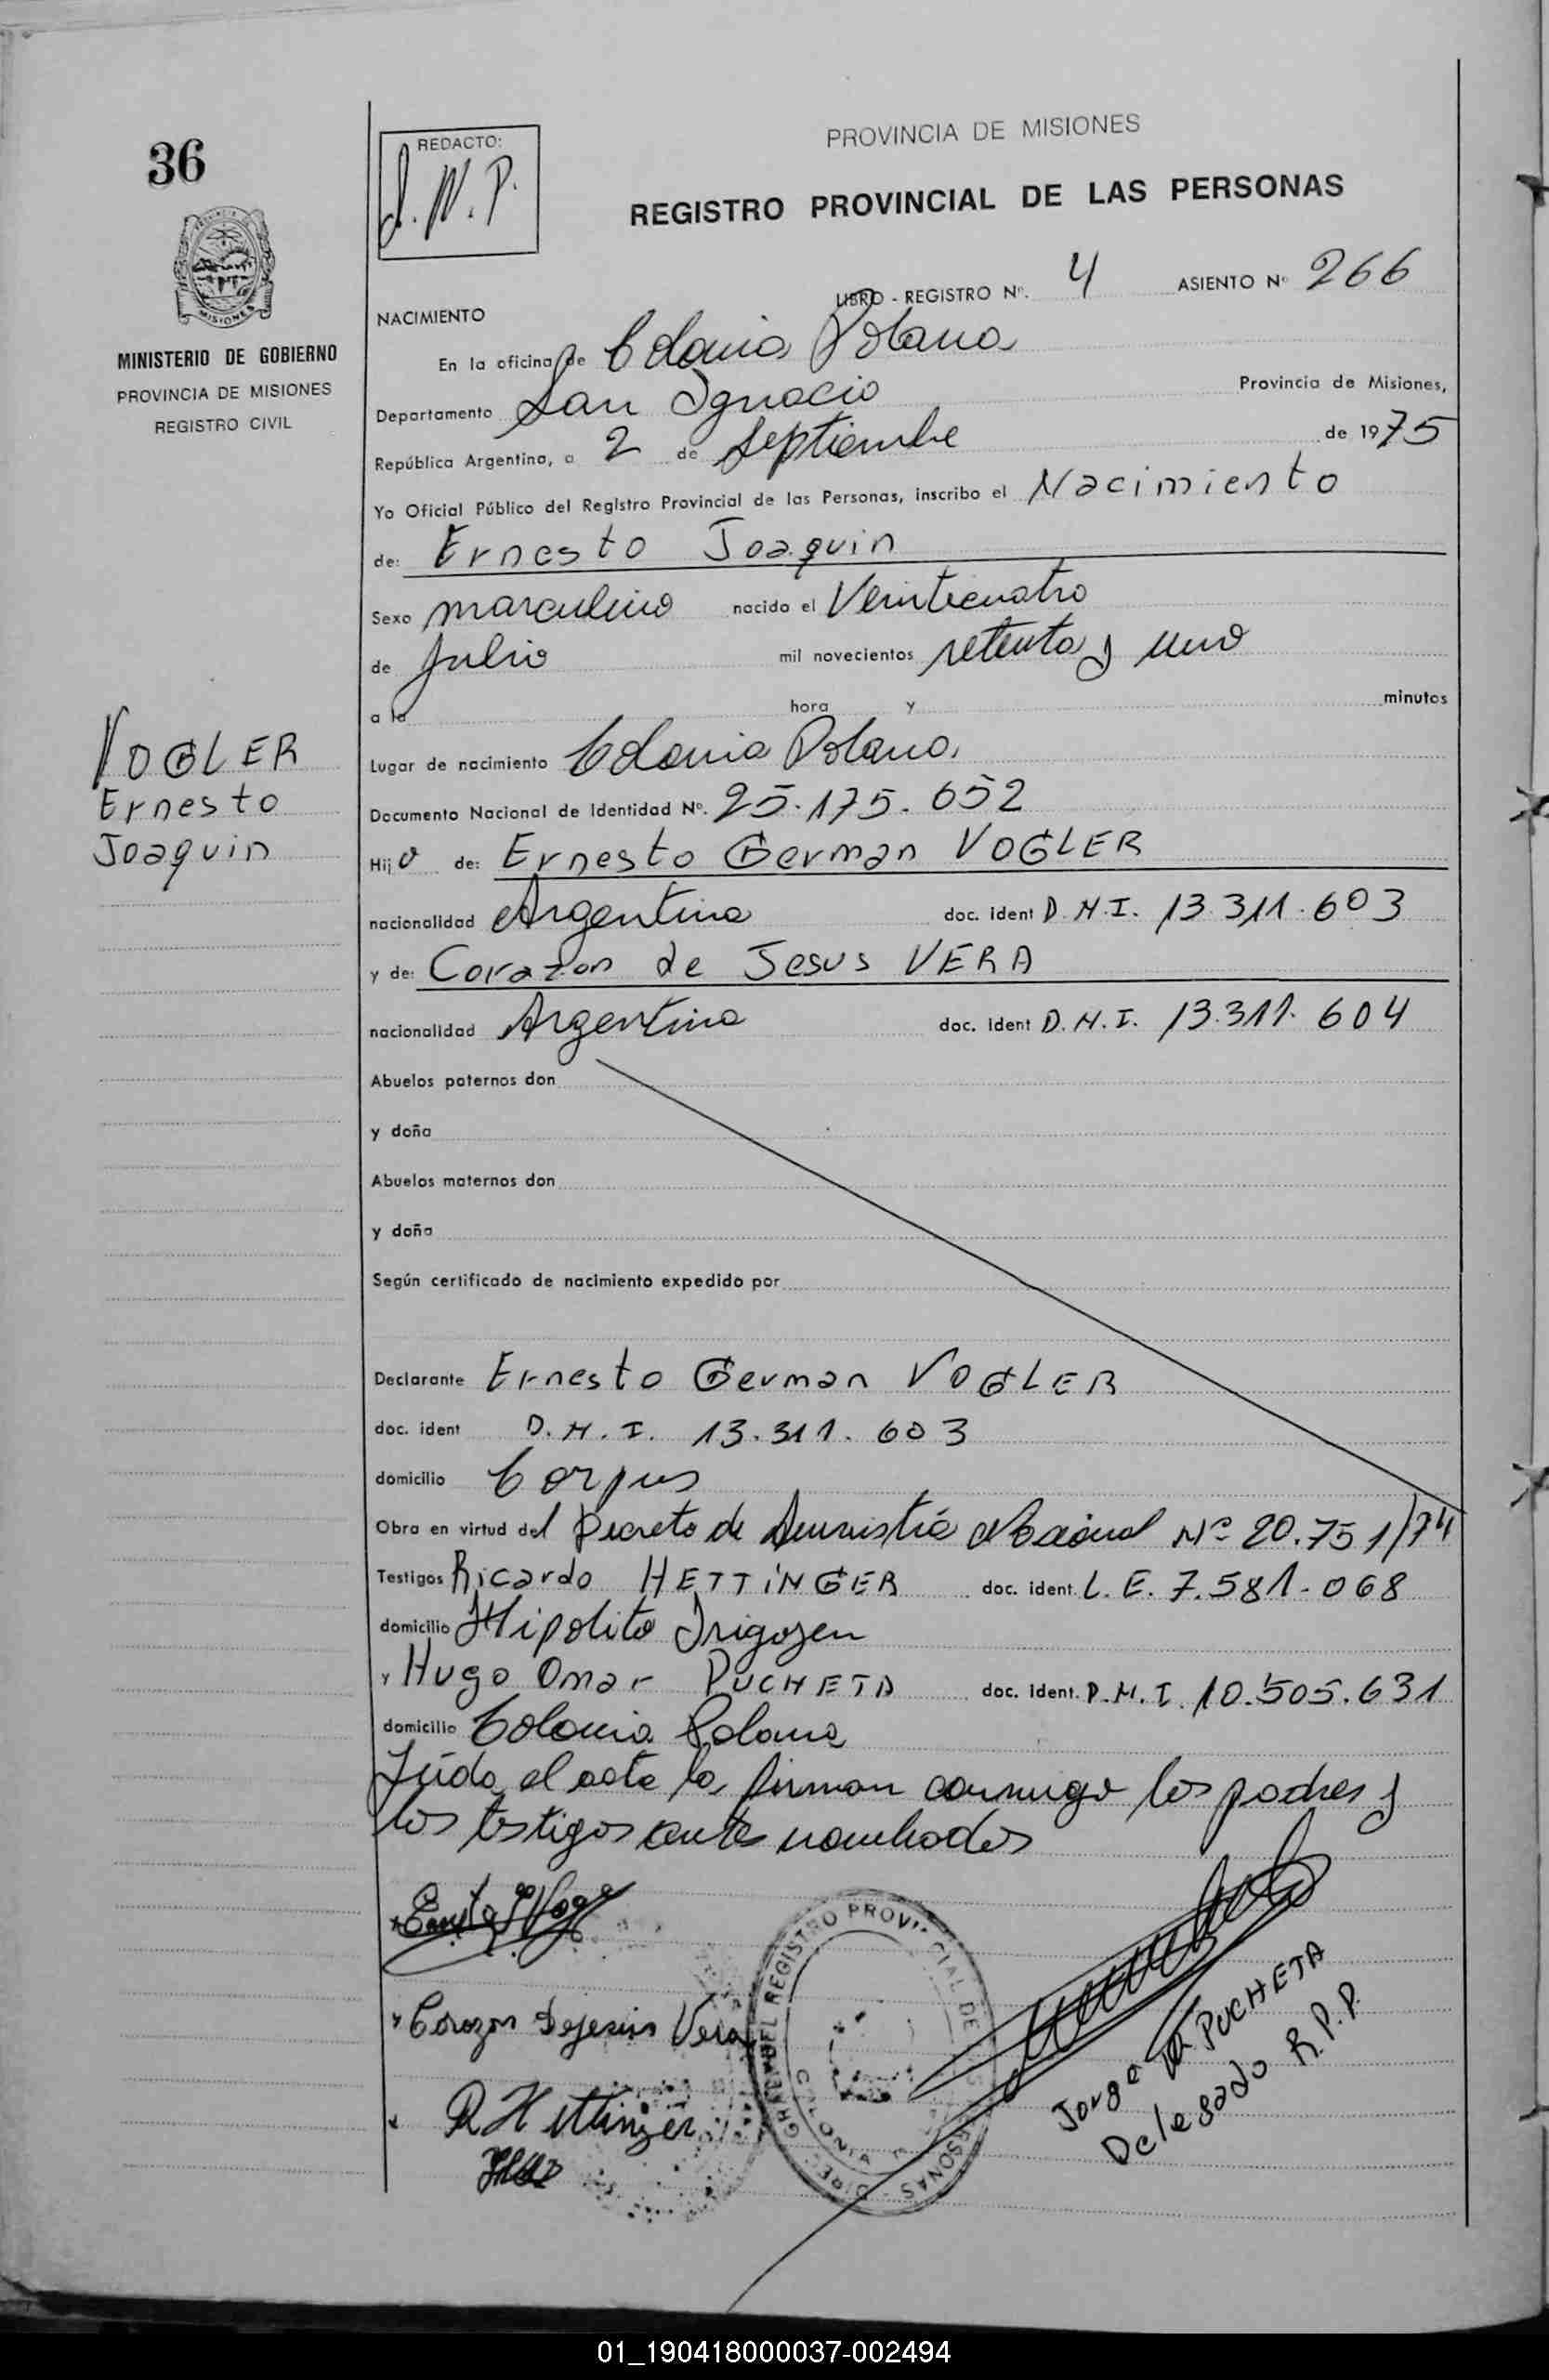 36
MISIONES
MINISTERIO DE GOBIERNO
PROVINCIA DE MISIONES
REGISTRO CIVIL
REDACTO:
J. N. P.
PROVINCIA DE MISIONES
REGISTRO PROVINCIAL DE LAS PERSONAS
LIBRO - REGISTRO Nº. 4 ASIENTO Nº 266
NACIMIENTO
En la oficina de Colonia Polana
Departamento San Ignacio Provincia de Misiones,
República Argentina, a 2 de Septiembre de 1975
Yo Oficial Público del Registro Provincial de las Personas, inscribo el Nacimiento
de: Ernesto Joaquin
Sexo masculino nacido el Veinticuatro
de Julio mil novecientos setenta y uno
a la hora y minutos
Lugar de nacimiento Colonia Polana.
Documento Nacional de Identidad Nº. 25.175.652
Hijo de: Ernesto German VOGLER
nacionalidad Argentina doc. ident D.N.I. 13.311.603
y de: Corazon de Jesus VERA
nacionalidad Argentina doc. ident D.N.I. 13.311.604
VOGLER
Ernesto
Joaquin
Abuelos paternos don
y doña
Abuelos maternos don
y doña
Según certificado de nacimiento expedido por
Declarante Ernesto German VOGLER
doc. ident D.N.I. 13.311.603
domicilio Corpus
Obra en virtud del Decreto de Amnistía Nacional Nº 20.751/74
Testigos Ricardo HETTINGER doc. ident. L.E. 7.581.068
domicilio Hipolito Irigoyen
y Hugo Omar PUCHETA doc. ident. D.N.I. 10.505.631
domicilio Colonia Polana
Leída el acta la firman conmigo los padres y
los testigos ante nombrados
Corazon Dejesus Vera
R Hettinger
REGISTRO PROVINCIAL DE LAS PERSONAS
COLONIA
Jorge PUCHETA
Delegado R.P.P.
01_190418000037-002494